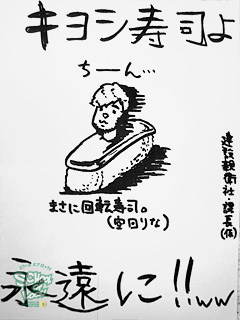 キヨシ寿司よ
ちーん…
まさに回転寿司。
(空回りな)
建設親衛社・課長(仮)
永遠に!!ww